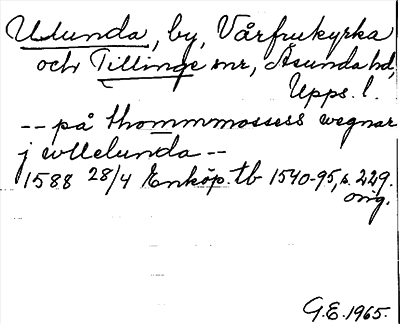 Ulunda, by, Vårfrukyrka
och Tillinge snr, Åsunda hd,
Upps. l.
-- på thommmossess wegnar
j wllelunda --
1588 28/4 Enköp. tb 1540-95, s. 229.
orig.
G.E. 1965.